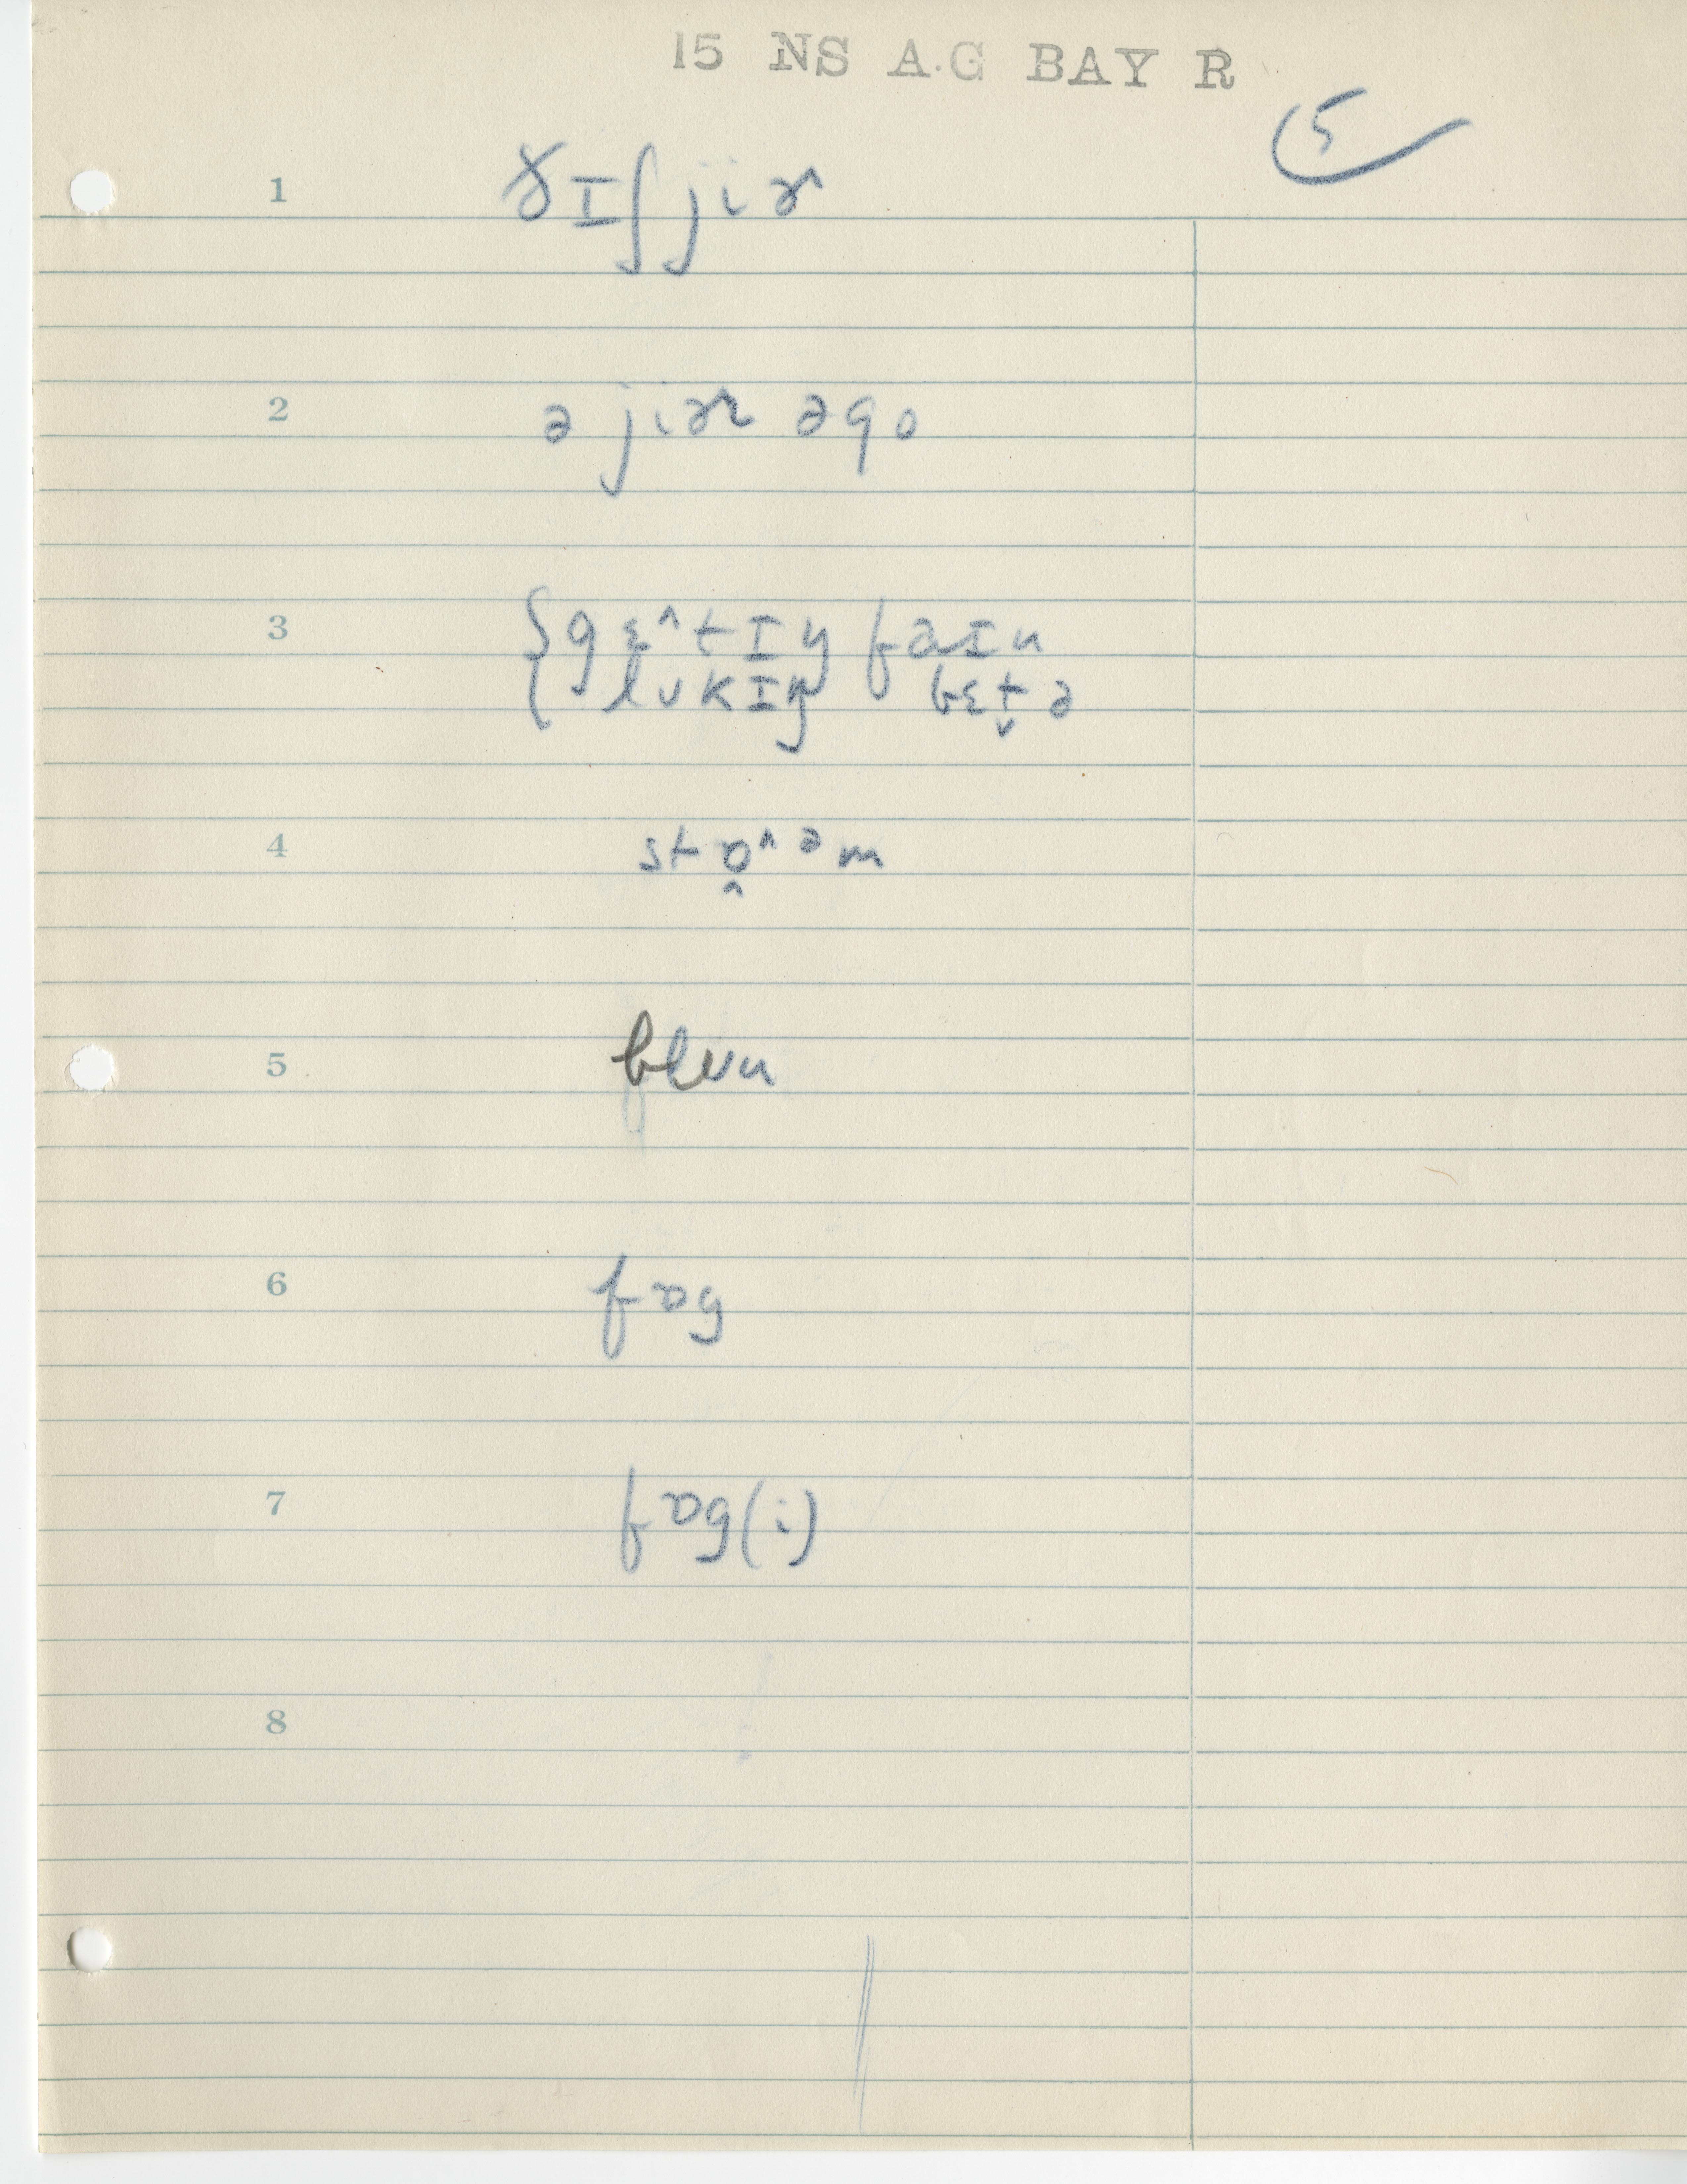 15 NS A.G BAY R
5
1 ðɪʃ jiɚ
2 ə jiɚ əgo
3 { gɛ^tɪŋ faɪn
lʊkɪŋ bɛt̬ə
4 stɒ̭^əm
5 blʊu
6 fɒg
7 fɒg(i)
8